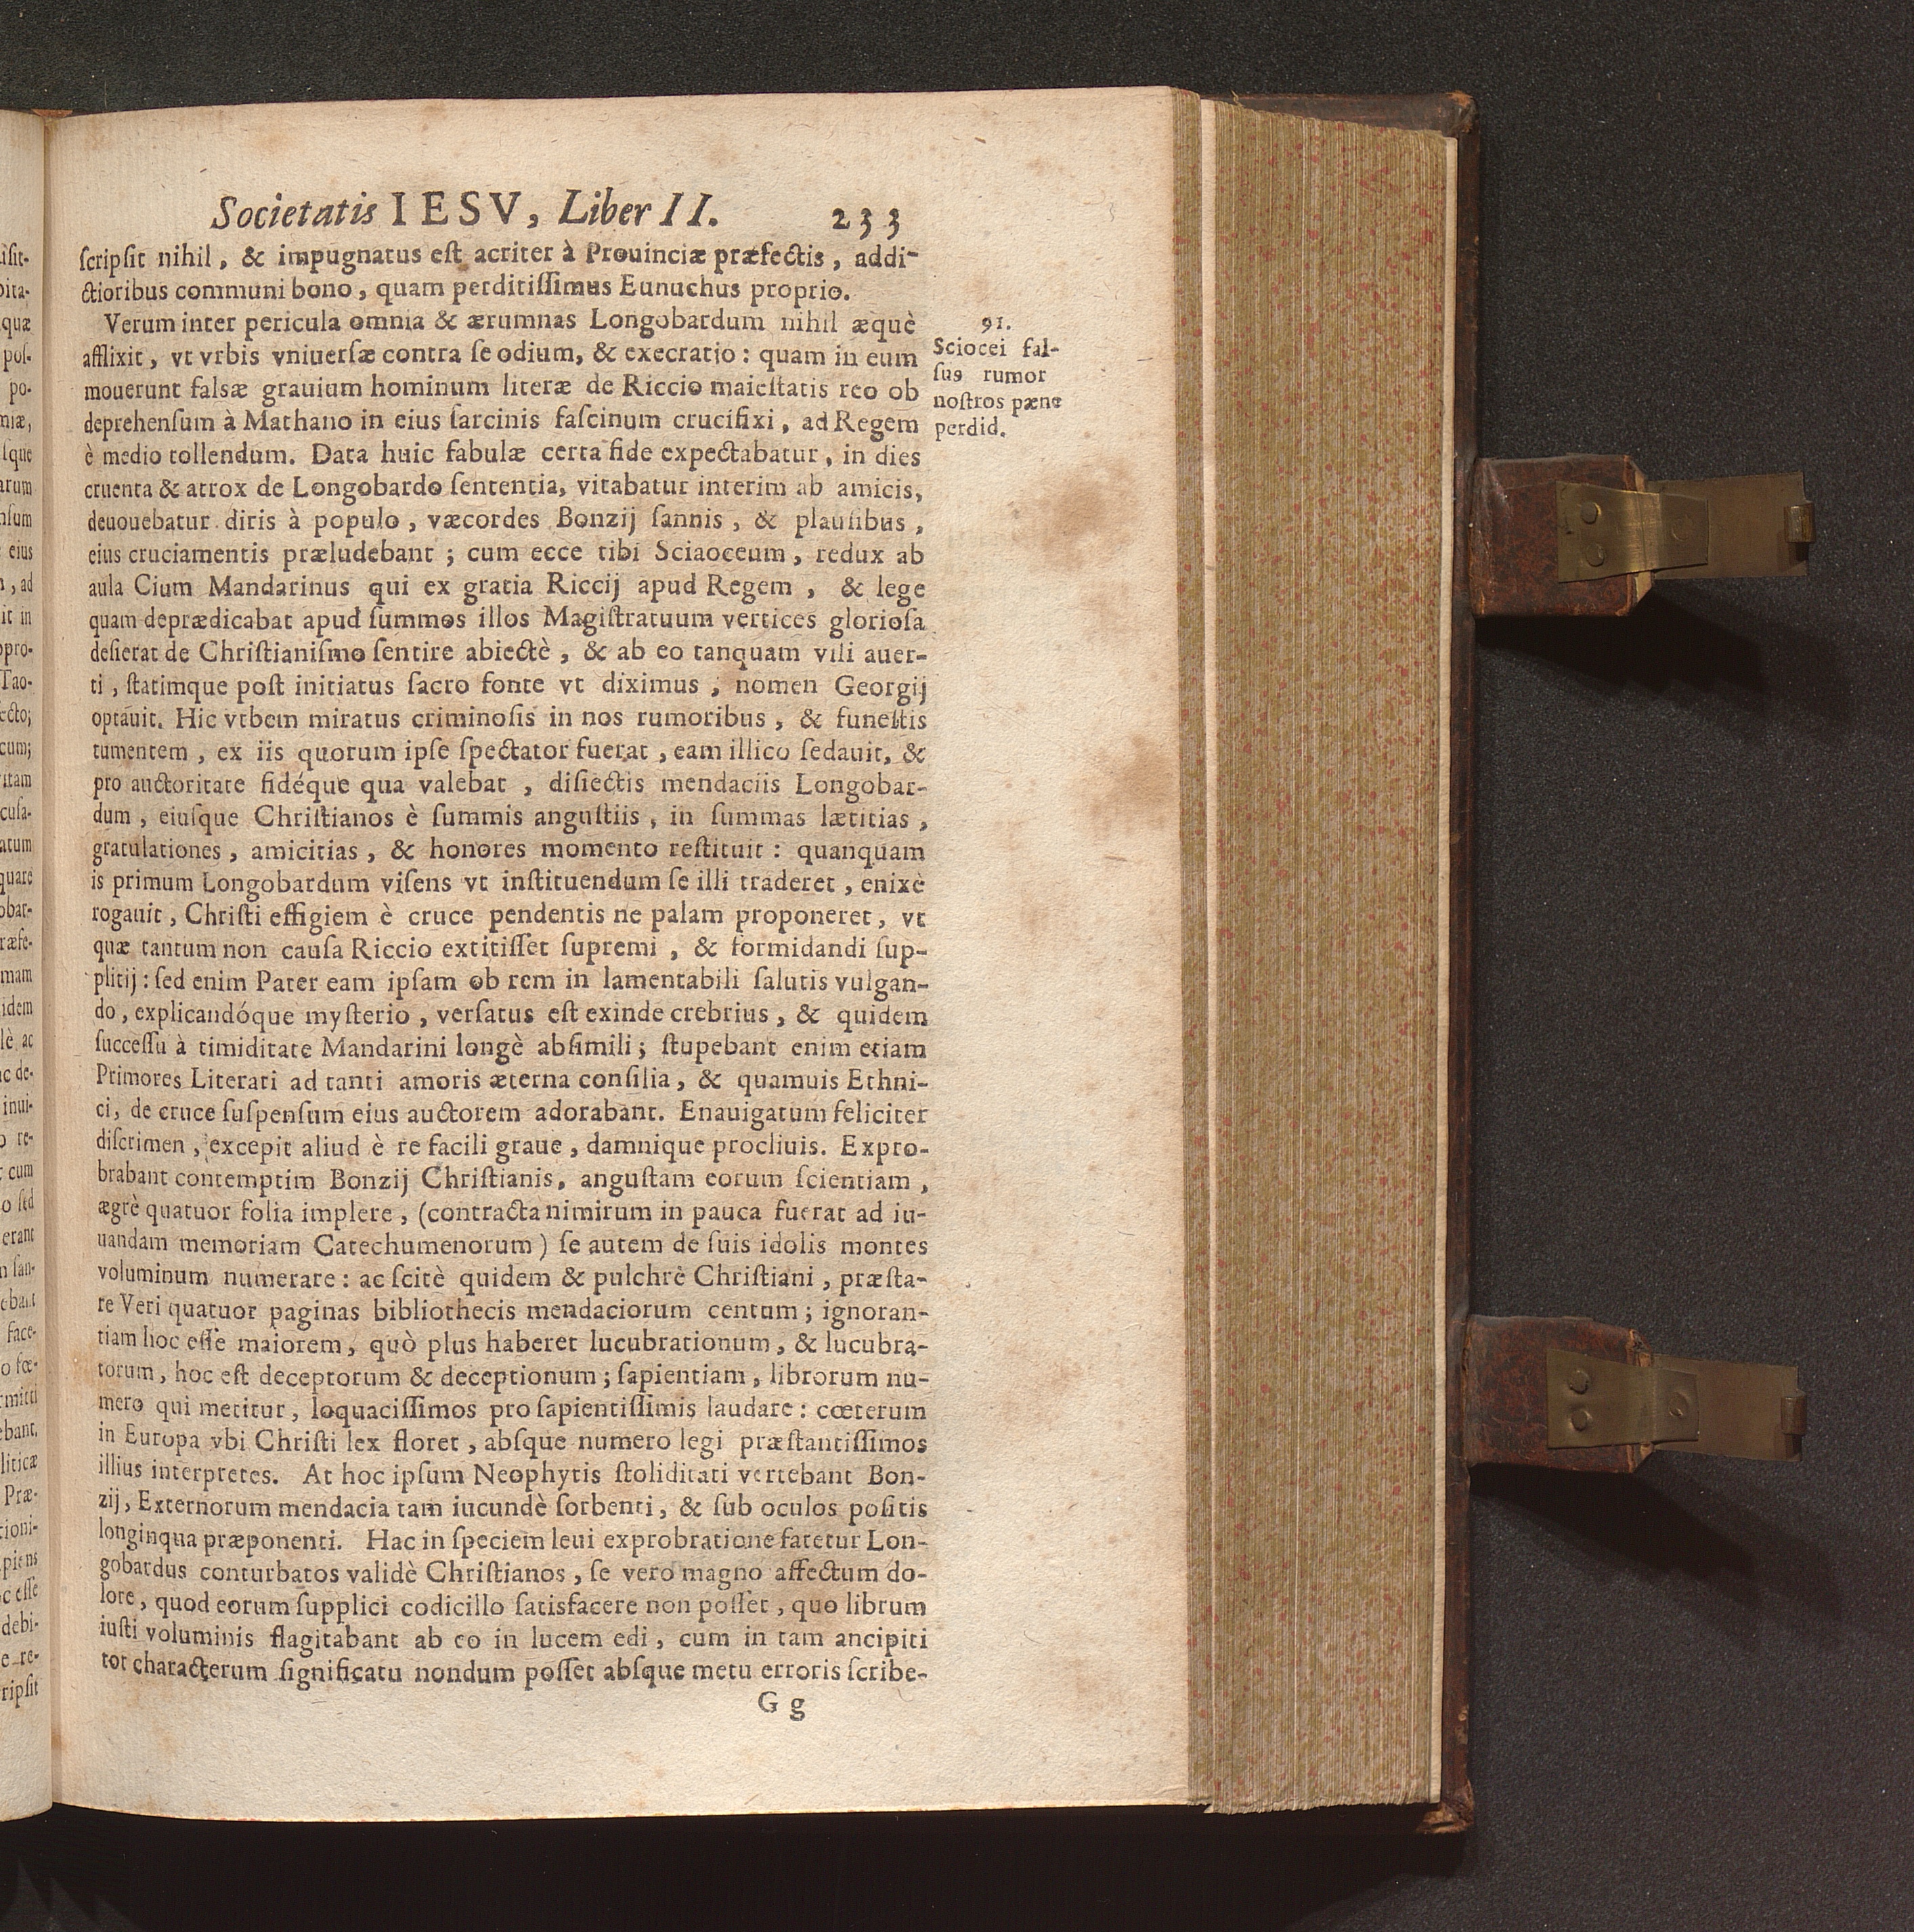 Societatis IESV, Liber II. 233
ſcripſit nihil, & impugnatus eſt acriter à Prouinciæ præfectis, addi-
ctioribus communi bono, quam perditiſſimus Eunuchus proprio.
Verum inter pericula omnia & ærumnas Longobardum nihil æquè
afflixit, vt vrbis vniuerſæ contra ſe odium, & execratio: quam in eum
mouerunt falsæ grauium hominum literæ de Riccio maieſtatis reo ob
deprehenſum à Mathano in eius ſarcinis faſcinum crucifixi, ad Regem
è medio tollendum. Data huic fabulæ certa fide expectabatur, in dies
cruenta & atrox de Longobardo ſententia, vitabatur interim ab amicis,
deuouebatur diris à populo, væcordes Bonzij ſannis, & plauſibus,
eius cruciamentis præludebant; cum ecce tibi Sciaoceum, redux ab
aula Cium Mandarinus qui ex gratia Riccij apud Regem, & lege
quam deprædicabat apud ſummos illos Magiſtratuum vertices glorioſa
deſierat de Chriſtianiſmo ſentire abiectè, & ab eo tanquam vili auer-
ti, ſtatimque poſt initiatus ſacro fonte vt diximus, nomen Georgij
optauit. Hic vrbem miratus criminoſis in nos rumoribus, & funeſtis
tumentem, ex iis quorum ipſe ſpectator fuerat, eam illico ſedauit, &
pro auctoritate fidéque qua valebat, diſiectis mendaciis Longobar-
dum, eiuſque Chriſtianos è ſummis anguſtiis, in ſummas lætitias,
gratulationes, amicitias, & honores momento reſtituit: quanquam
is primum Longobardum viſens vt inſtituendum ſe illi traderet, enixè
rogauit, Chriſti effigiem è cruce pendentis ne palam proponeret, vt
quæ tantum non cauſa Riccio extitiſſet ſupremi, & formidandi ſup-
plitij: ſed enim Pater eam ipſam ob rem in lamentabili ſalutis vulgan-
do, explicandóque myſterio, verſatus eſt exinde crebrius, & quidem
ſucceſſu à timiditate Mandarini longè abſimili; ſtupebant enim etiam
Primores Literati ad tanti amoris æterna conſilia, & quamuis Ethni-
ci, de cruce ſuſpenſum eius auctorem adorabant. Enauigatum feliciter
diſcrimen, excepit aliud è re facili graue, damnique procliuis. Expro-
brabant contemptim Bonzij Chriſtianis, anguſtam eorum ſcientiam,
ægrè quatuor folia implere, (contracta nimirum in pauca fuerat ad iu-
uandam memoriam Catechumenorum) ſe autem de ſuis idolis montes
voluminum numerare: ac ſcitè quidem & pulchrè Chriſtiani, præſta-
re Veri quatuor paginas bibliothecis mendaciorum centum; ignoran-
tiam hoc eſſe maiorem, quò plus haberet lucubrationum, & lucubra-
torum, hoc eſt deceptorum & deceptionum; ſapientiam, librorum nu-
mero qui metitur, loquaciſſimos pro ſapientiſſimis laudare: cœterum
in Europa vbi Chriſti lex floret, abſque numero legi præſtantiſſimos
illius interpretes. At hoc ipſum Neophytis ſtoliditati vertebant Bon-
zij, Externorum mendacia tam iucundè ſorbenti, & ſub oculos poſitis
longinqua præponenti. Hac in ſpeciem leui exprobratione fatetur Lon-
gobardus conturbatos validè Chriſtianos, ſe vero magno affectum do-
lore, quod eorum ſupplici codicillo ſatisfacere non poſſet, quo librum
iuſti voluminis flagitabant ab eo in lucem edi, cum in tam ancipiti
tot characterum ſignificatu nondum poſſet abſque metu erroris ſcribe-
G g
91.
Sciocei fal-
ſus rumor
noſtros pæne
perdid.